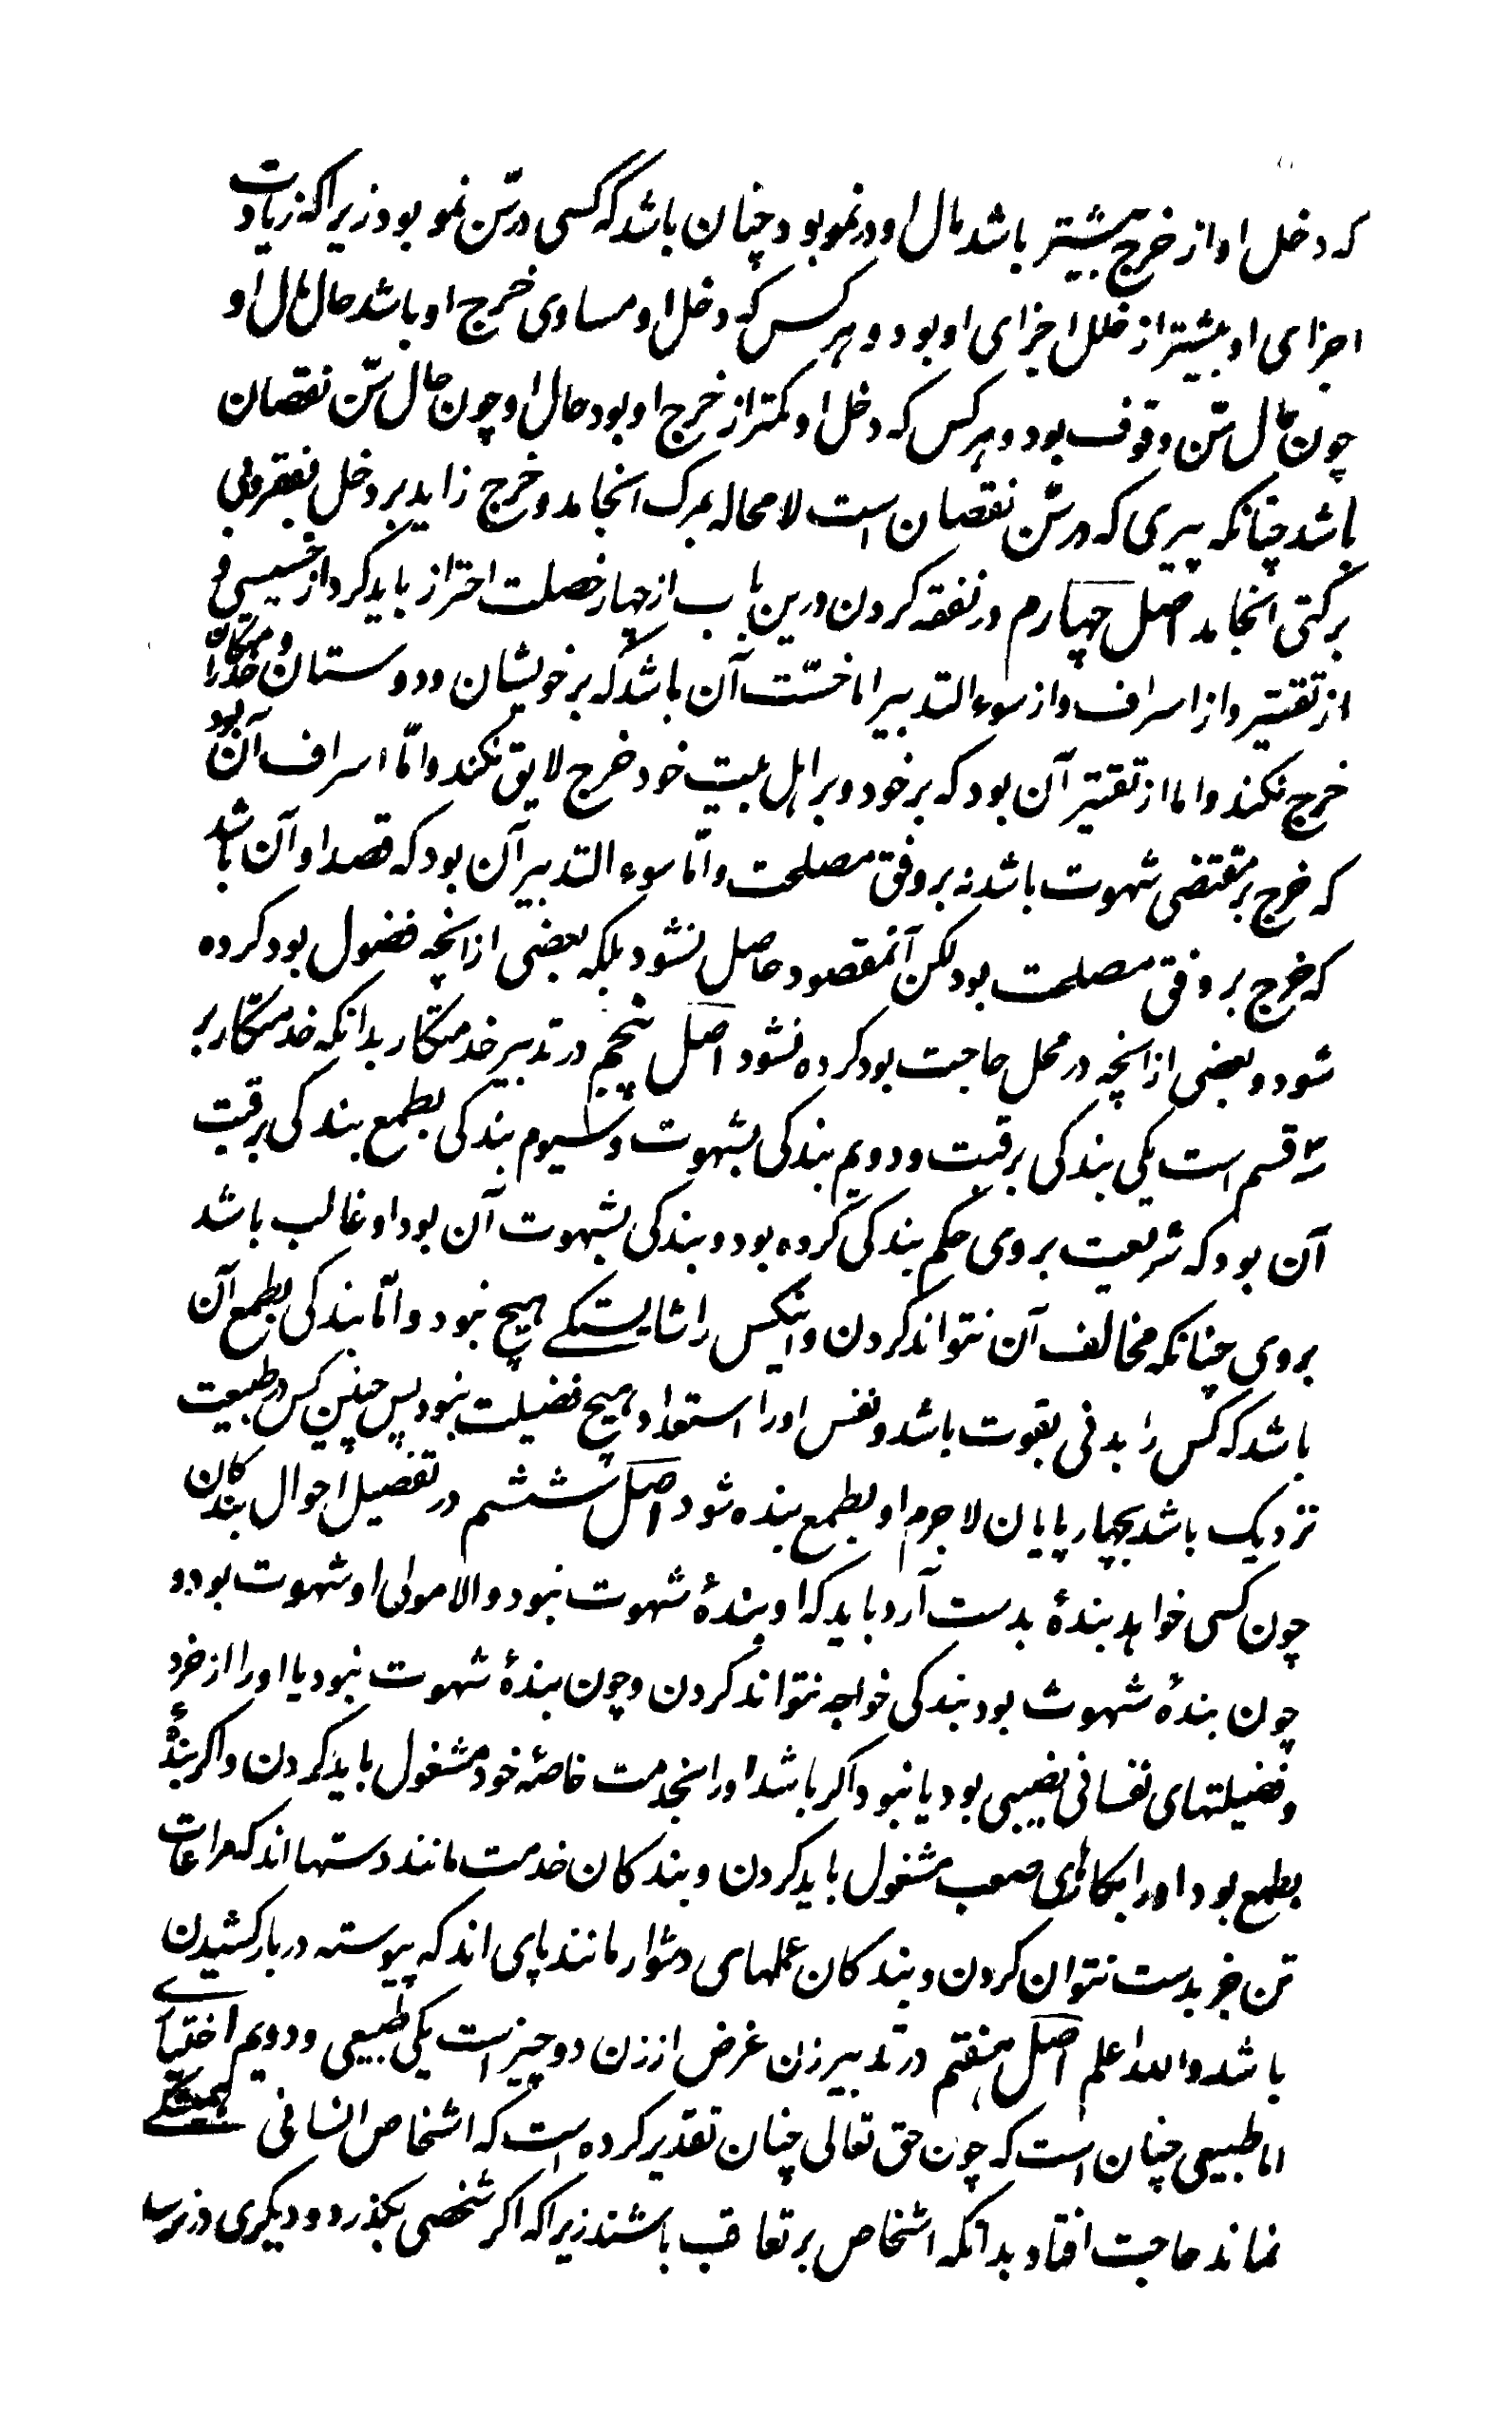 که دخل او از خرج بیشتر باشد مال او در نمو بود و چنان باشد که کسی در سن نمو بود زیرا که زیادت
اجزای او بیشتر از خلل اجزای او بود و هر کس که دخل او مساوی خرج او باشد حال مال او
چون حال سن وقوف بود و هر کس که دخل او کمتر از خرج او بود حال او چون حال سن نقصان
باشد چنانکه پیری که در سن نقصان است لا محاله بمرک انجامد و خرج زاید بر دخل بفقر و بی
برکتی انجامد اصل چهارم در نفقه کردن درین باب از چهار خصلت احتراز باید کرد از خسیسی و
از تقتیر و از اسراف و از سوء التدبیر اما خسّت آن باشد که بر خویشان و دوستان و
خرج نکند و اما از تقتیر آن بود که بر خود و بر اهل بیت خود خرج لایق نکند و امّا اسراف آن بود
که خرج بر مقتضی شهوت باشد نه بر وفق مصلحت و امّا سوء التدبیر آن بود که قصد او آن باشد
که خرج بر وفق مصلحت بود لکن آنمقصود حاصل نشود بلکه بعضی از انچه فضول بود کرده
شود و بعضی از انچه در محل حاجت بود کرده نشود اصل پنجم در تدبیر خدمتکار بدانکه خدمتکار بر
سه قسم است یکی بندکی برقیت و دویم بندکی بشهوت و سیوم بندکی بطمع بندکی برقیت
آن بود که شریعت بر وی حکم بندکی کرده بود و بندکی بشهوت آن بود او غالب باشد
بر وی چنانکه مخالف آن نتواند کردن و اینکس را شایستکی هیچ نبود و امّا بندکی بطمع آن
باشد که کس را بدنی بقوت باشد و نفس او را استعداد هیچ فضیلت نبود پس چنین کس در طبیعت
نزدیک باشد بچهارپایان لاجرم او بطمع بنده شود اصل ششم در تفصیل احوال بندکان
چون کسی خواهد بندۀ بدست آرد باید که او بندۀ شهوت نبود و الا مولی او شهوت بود و
چون بندۀ شهوت بود بندکی خواجه نتواند کردن و چون بندۀ شهوت نبود یا او را از خرد
و فضیلتهای نفسانی نصیبی بود یا نبود اکر باشد او را بخدمت خاصۀ خود مشغول باید کردن و اکر بندۀ
بطمع بود او را بکارهای صعب مشغول باید کردن و بندکان خدمت مانند دستها اند که مراعات
تن جز بدست نتوان کردن و بندکان عملهای دشوار مانند پای اند که پیوسته در بار کشیدن
باشد والله اعلم اصل هفتم در تدبیر زن غرض از زن دو چیز است یکی طبیعی و دویم اختیاری
اما طبیعی چنان است که چون حق تعالی چنان تقدیر کرده است که اشخاص انسانی همیشکی
نماند حاجت افتاد بدانکه اشخاص بر تعاقب باشند زیرا که اکر شخصی بکذرد و دیکری در نرسد